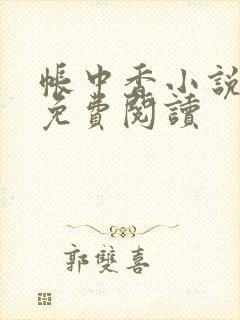 帳中香小說
免費閱讀
郭雙喜